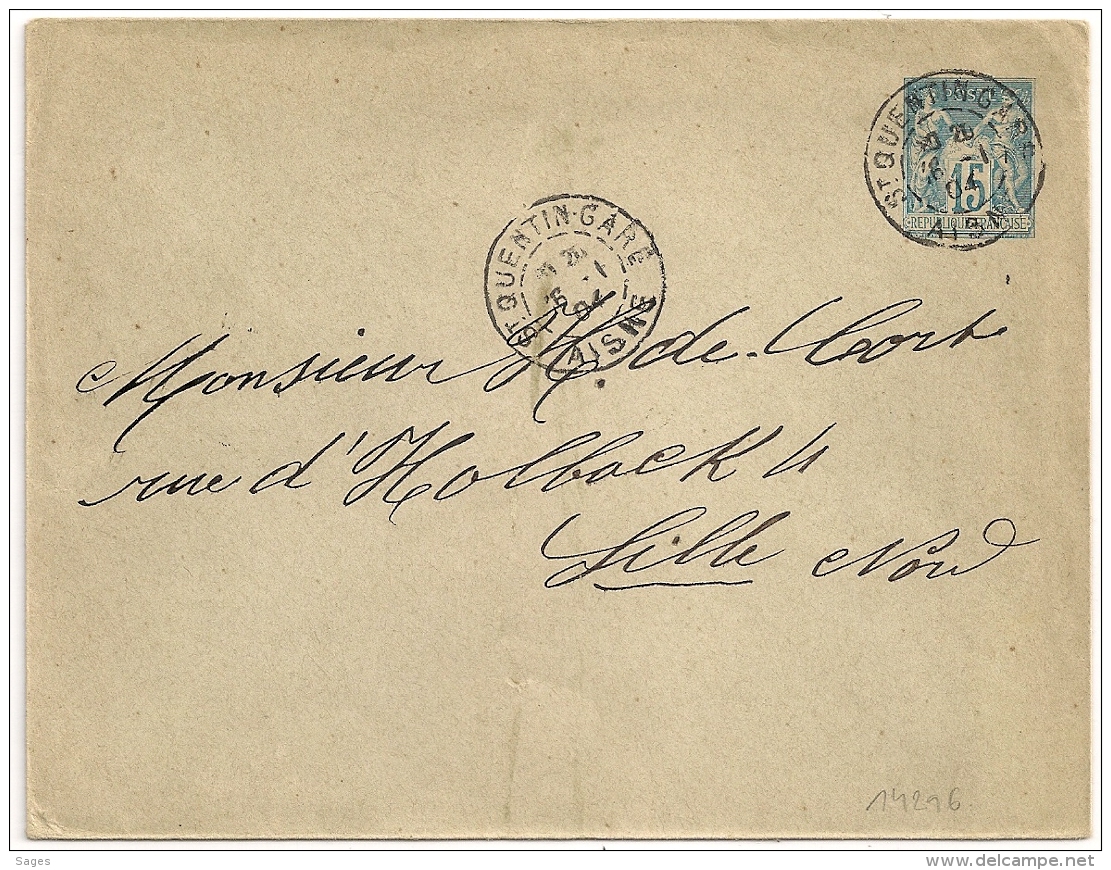 POSTES
15
REPUBLIQUE FRANÇAISE
ST QUENTIN-GARE
26
-1
04
AISNE
ST QUENTIN-GARE
26
-1
04
AISNE
Monsieur H. de Cort
rue d'Holback 4
Lille Nord
14296
Sages
www.delcampe.net